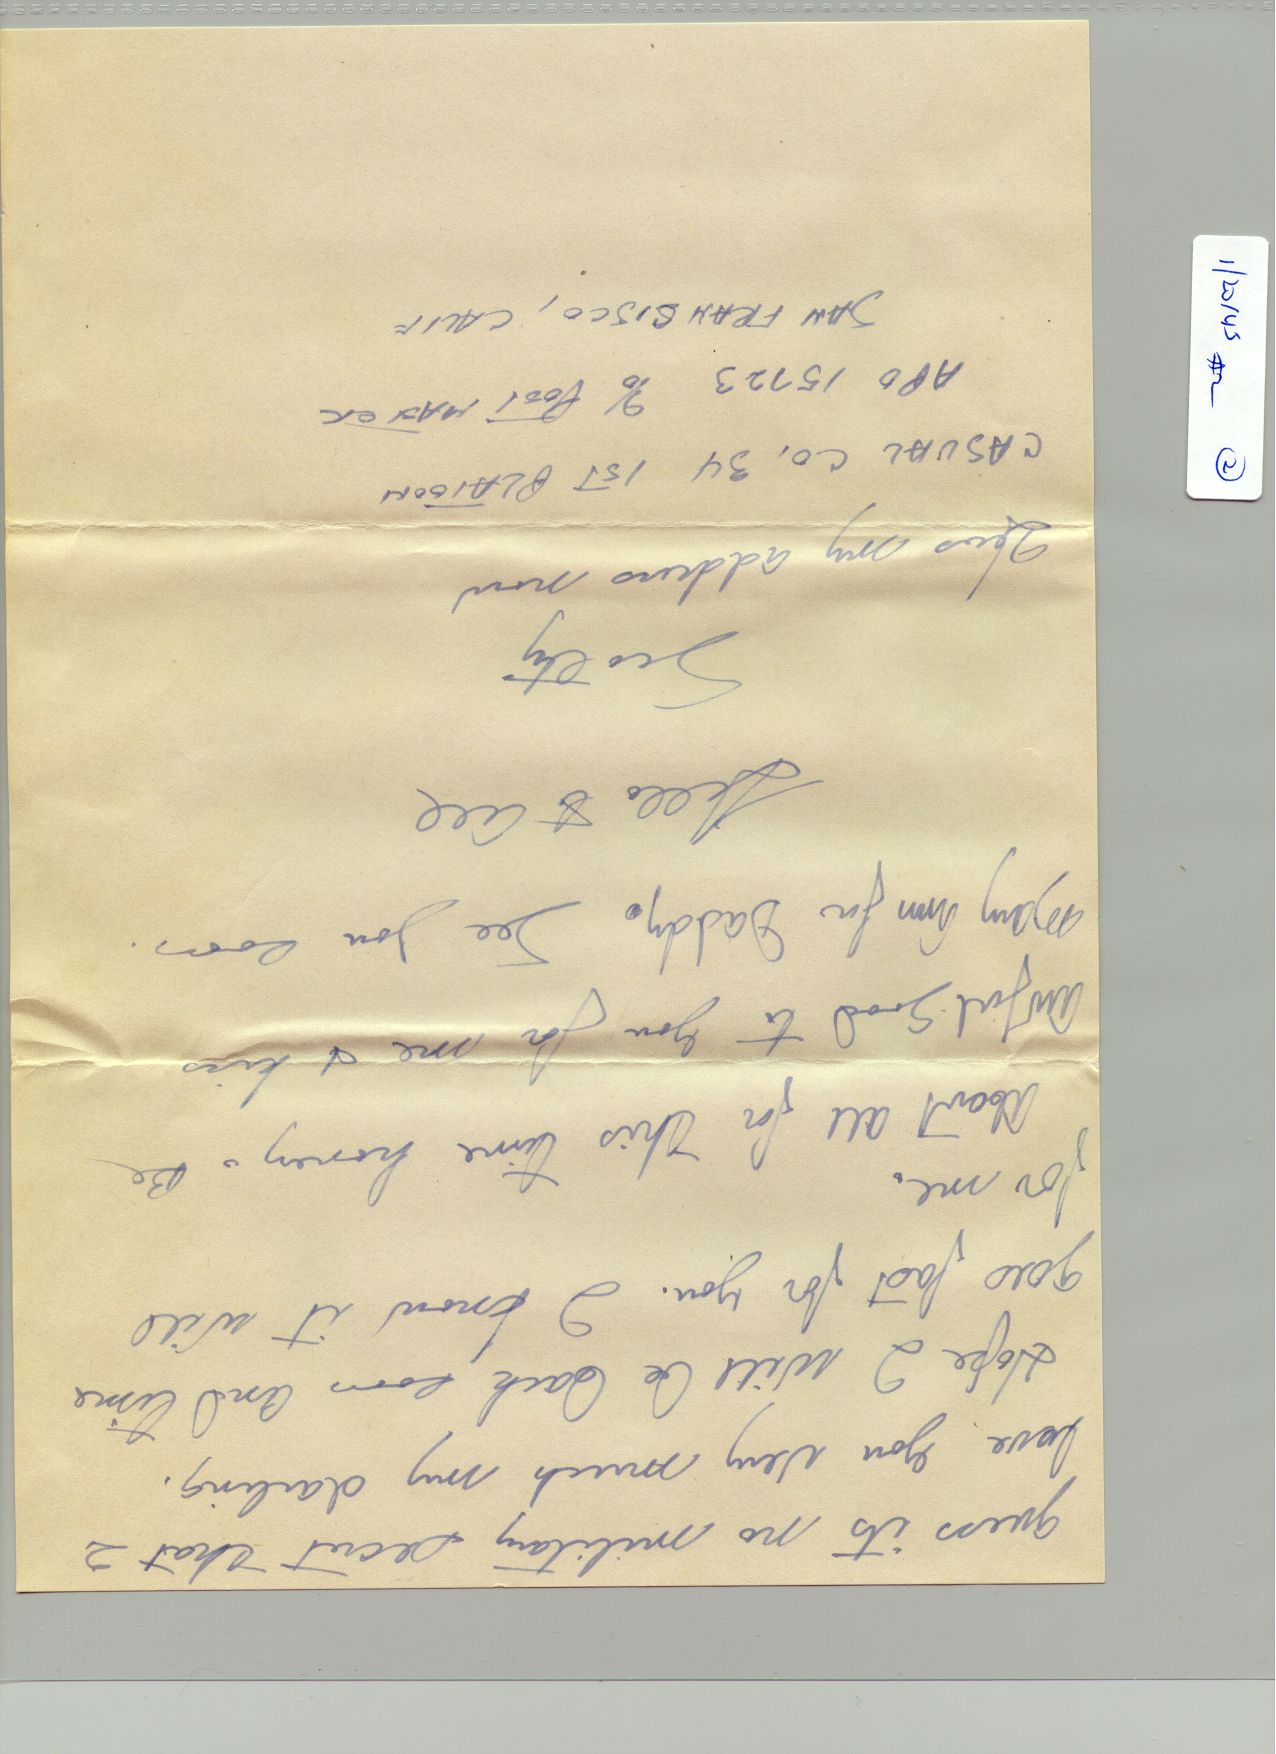 guess its no military secret that I
love you very much my darling.
Hope I will be back soon and time
goes fast for you. I know it will
for me.
About all for this time honey. Be
awful Good to you for me & kiss
Ann for Daddy. See you soon.
Hello to all
Scotty
Heres my address now
CASUAL CO. 34 1ST PLATOON
APO 15723 % POST MASTER
SAN FRANCISCO, CALIF
1/25/45 #2 ②